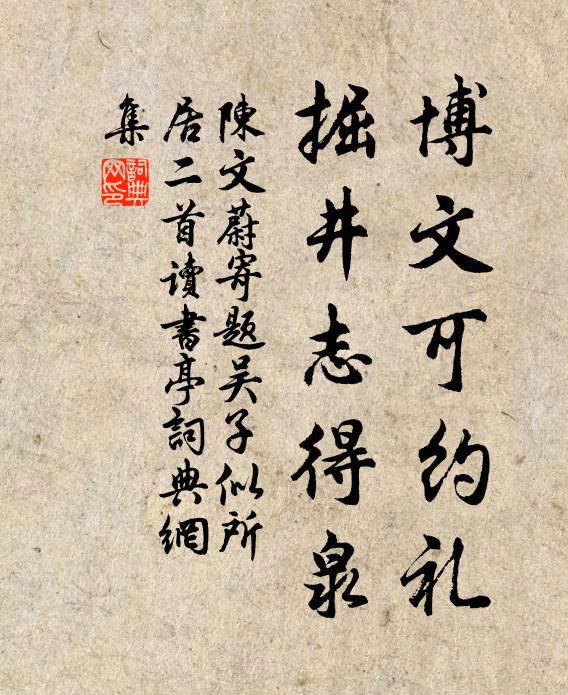 博文可约礼
掘井志得泉
陳文蔚寄題吴子似所
居二首讀書亭詞典網
集
詞典
网印